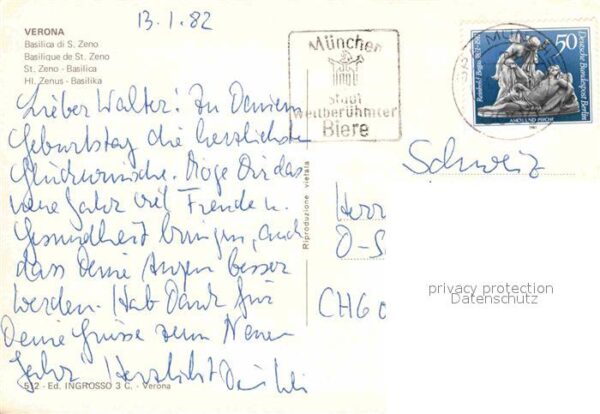 13.1.82
VERONA
Basilica di S. Zeno
Basilique de St. Zeno
St. Zeno - Basilica
Hl. Zenus - Basilika
München
Stadt
weltberühmter
Biere
50
Deutsche Bundespost Berlin
Reinhold Begas 1831-1911
AMOR UND PSYCHE
Lieber Walter! Zu Deinem
Geburtstag die herzlichsten
Glückwünsche. Möge Dir das
neue Jahr viel Freude u.
Gesundheit bringen, auch
dass Deine Augen besser
werden. Hab Dank für
Deine Grüsse zum Neuen
Jahr. Herzlichst Dein
Schweiz
Herr
CH6
Riproduzione vietata
privacy protection
Datenschutz
512 - Ed. INGROSSO 3 C. - Verona